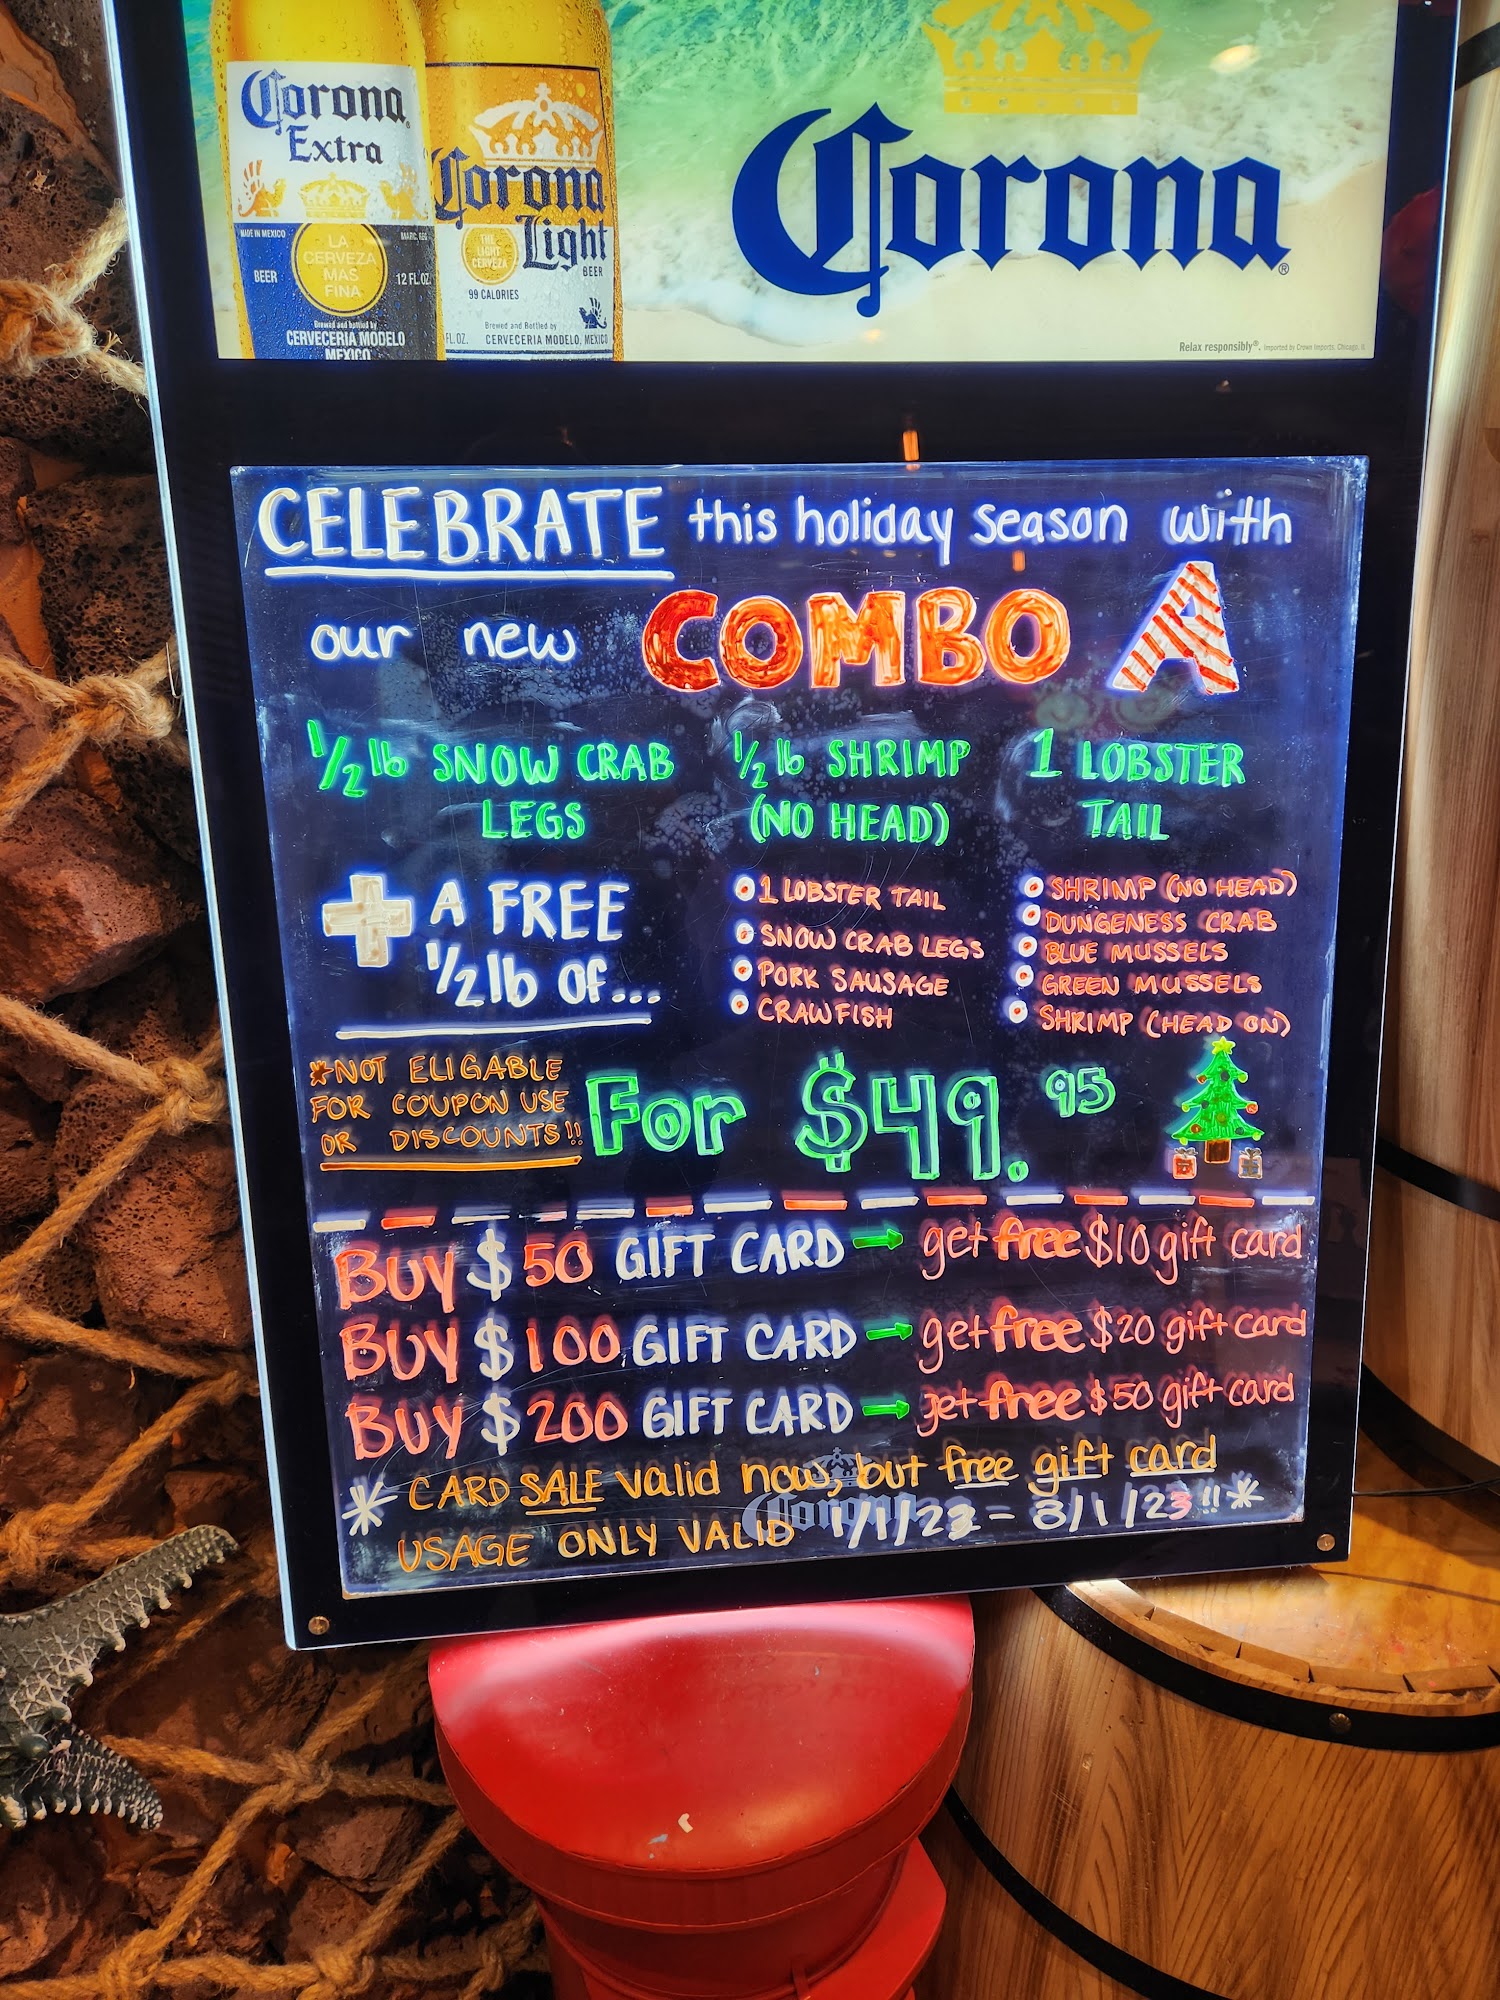 Corona
Extra
MADE IN MEXICO
MARC. REG.
LA
CERVEZA
MAS
FINA
BEER
12 FL.OZ.
Brewed and bottled by
CERVECERIA MODELO
MEXICO
Corona
Light
BEER
THE
LIGHT
CERVEZA
99 CALORIES
Brewed and Bottled by
FL.OZ. CERVECERIA MODELO, MEXICO
Corona®
Relax responsibly®. Imported by Crown Imports, Chicago, IL
CELEBRATE this holiday season with
our new COMBO A
1/2 lb SNOW CRAB
LEGS
1/2 lb SHRIMP
(NO HEAD)
1 LOBSTER
TAIL
+ A FREE
1/2 lb OF...
1 LOBSTER TAIL
SNOW CRAB LEGS
PORK SAUSAGE
CRAWFISH
SHRIMP (NO HEAD)
DUNGENESS CRAB
BLUE MUSSELS
GREEN MUSSELS
SHRIMP (HEAD ON)
*NOT ELIGABLE
FOR COUPON USE
OR DISCOUNTS!!
For $49.95
BUY $50 GIFT CARD → get free $10 gift card
BUY $100 GIFT CARD → get free $20 gift card
BUY $200 GIFT CARD → get free $50 gift card
* CARD SALE valid now, but free gift card
USAGE ONLY VALID 1/1/23 - 3/1/23!! *
Corona